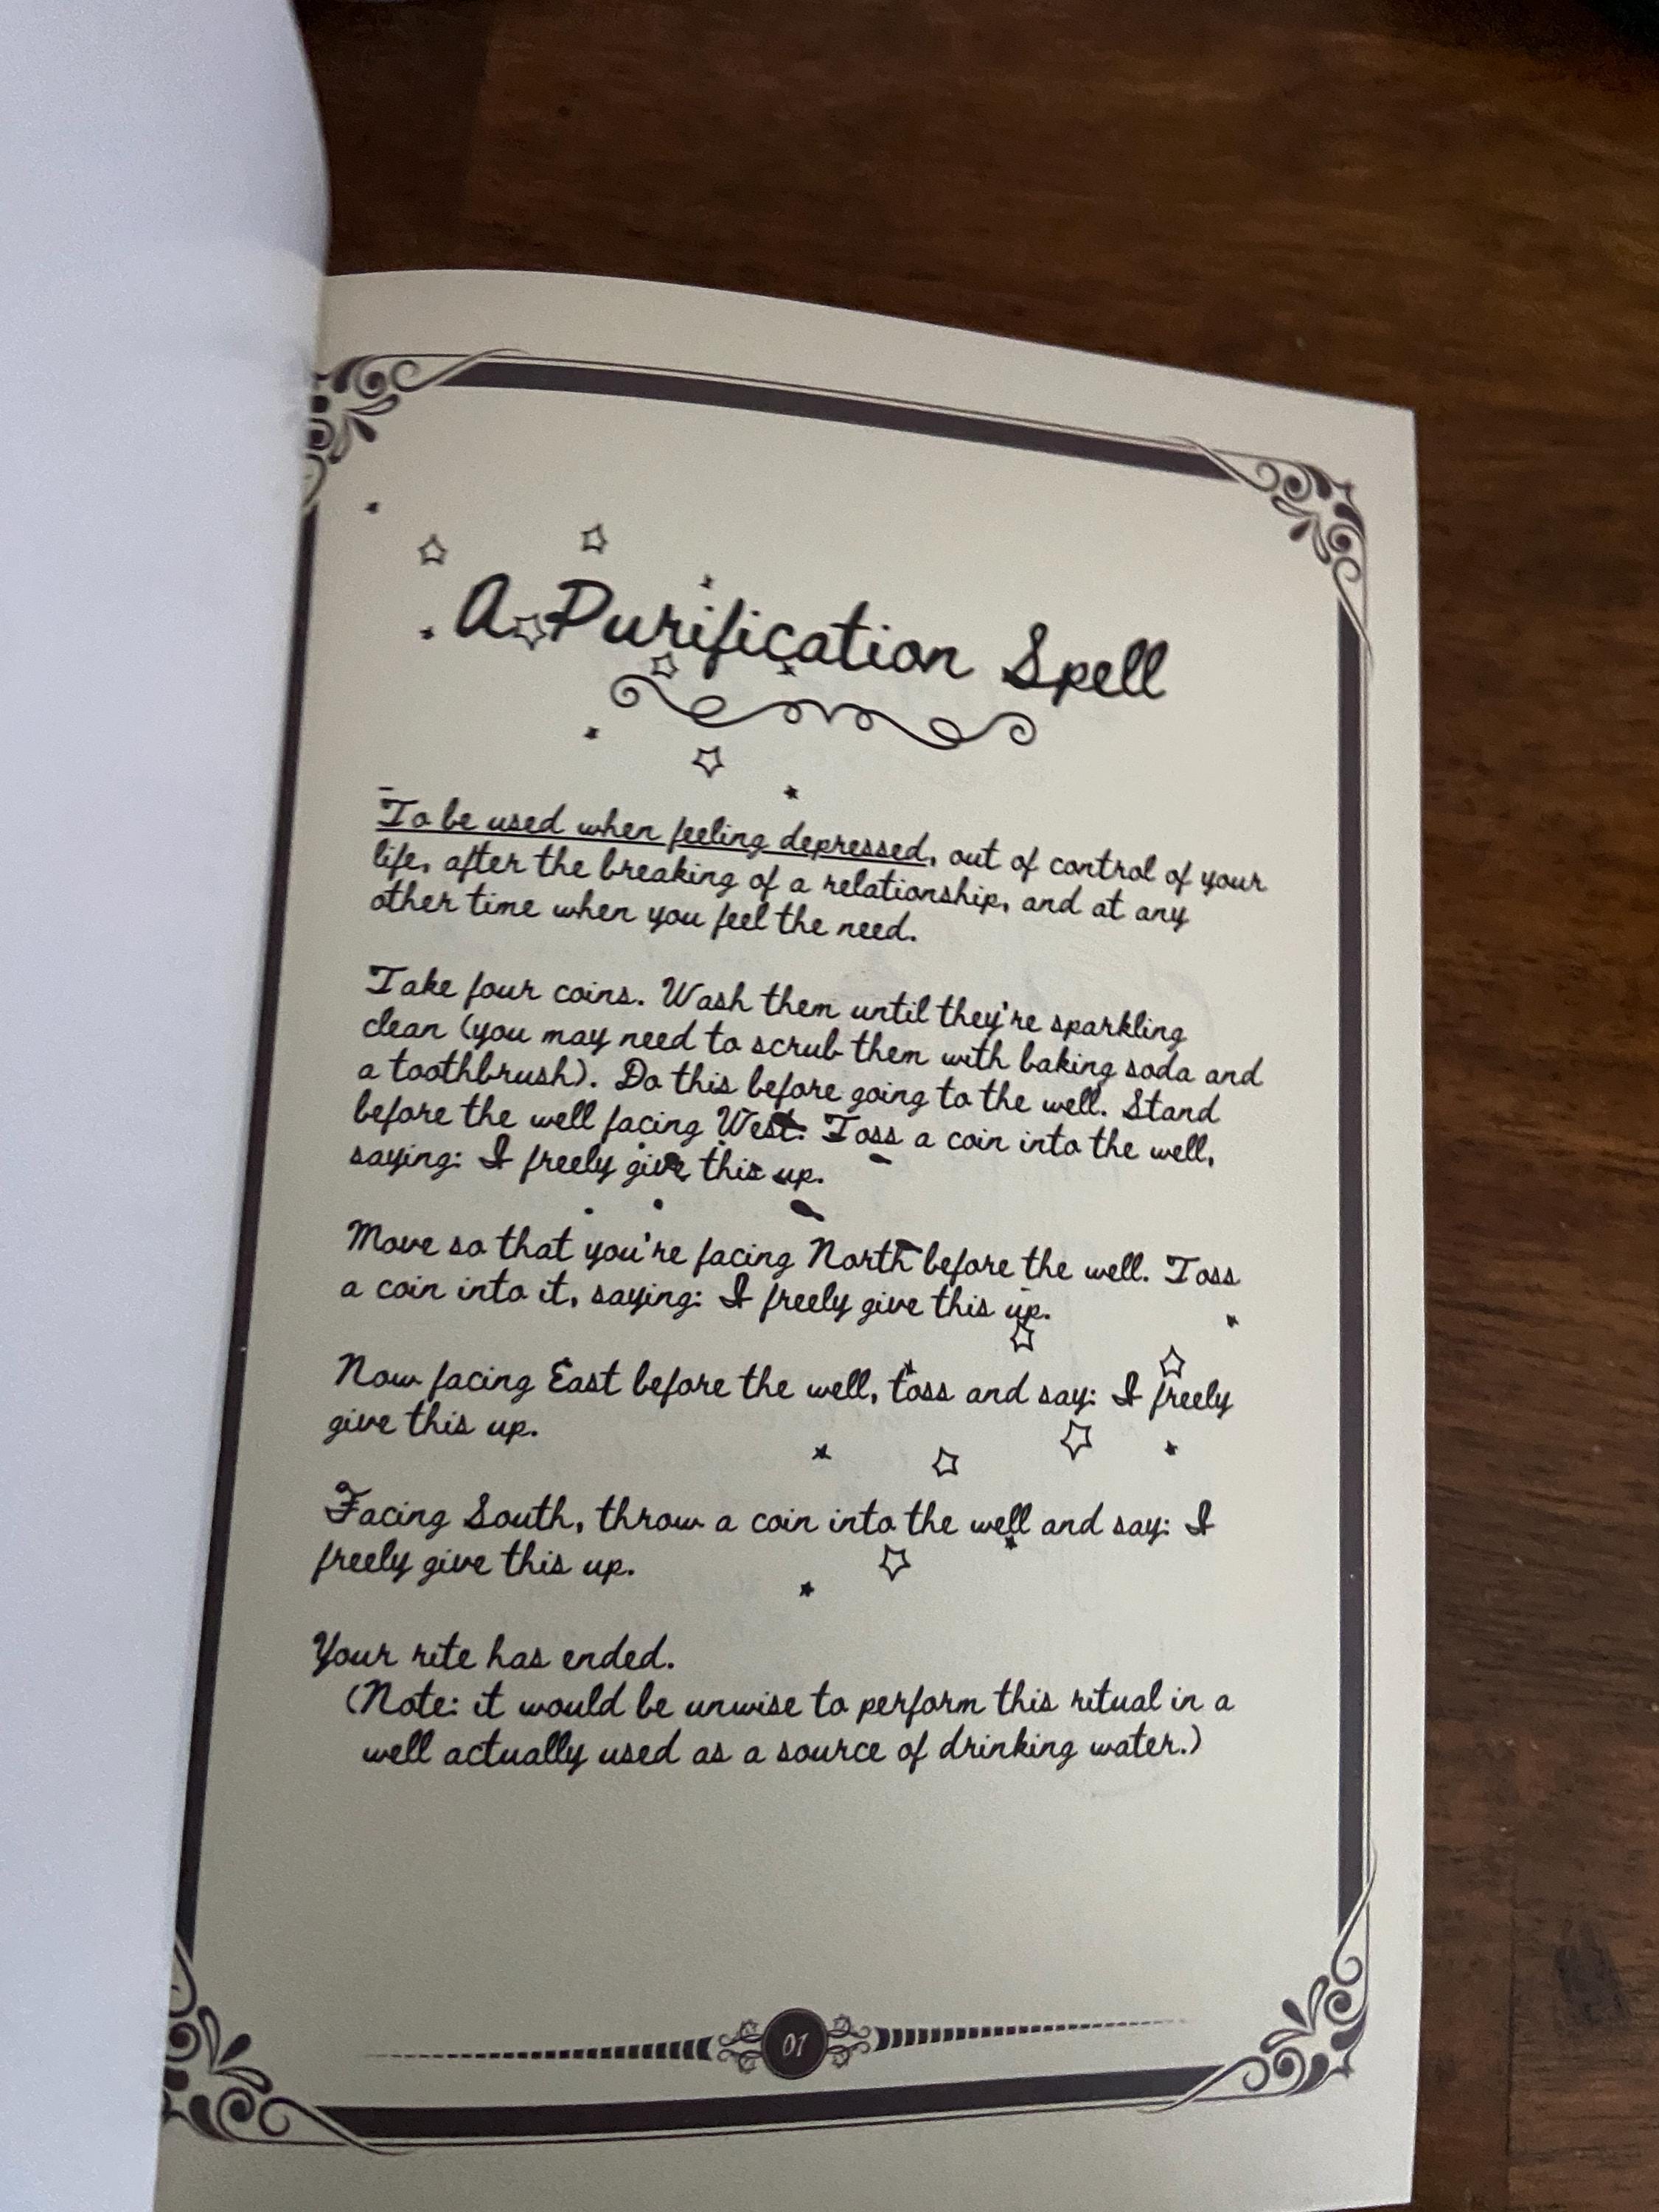 A Purification Spell
To be used when feeling depressed, out of control of your
life, after the breaking of a relationship, and at any
other time when you feel the need.
Take four coins. Wash them until they're sparkling
clean (you may need to scrub them with baking soda and
a toothbrush). Do this before going to the well. Stand
before the well facing West. Toss a coin into the well,
saying: I freely give this up.
Move so that you're facing North before the well. Toss
a coin into it, saying: I freely give this up.
Now facing East before the well, toss and say: I freely
give this up.
Facing South, throw a coin into the well and say: I
freely give this up.
Your rite has ended.
(Note: it would be unwise to perform this ritual in a
well actually used as a source of drinking water.)
01